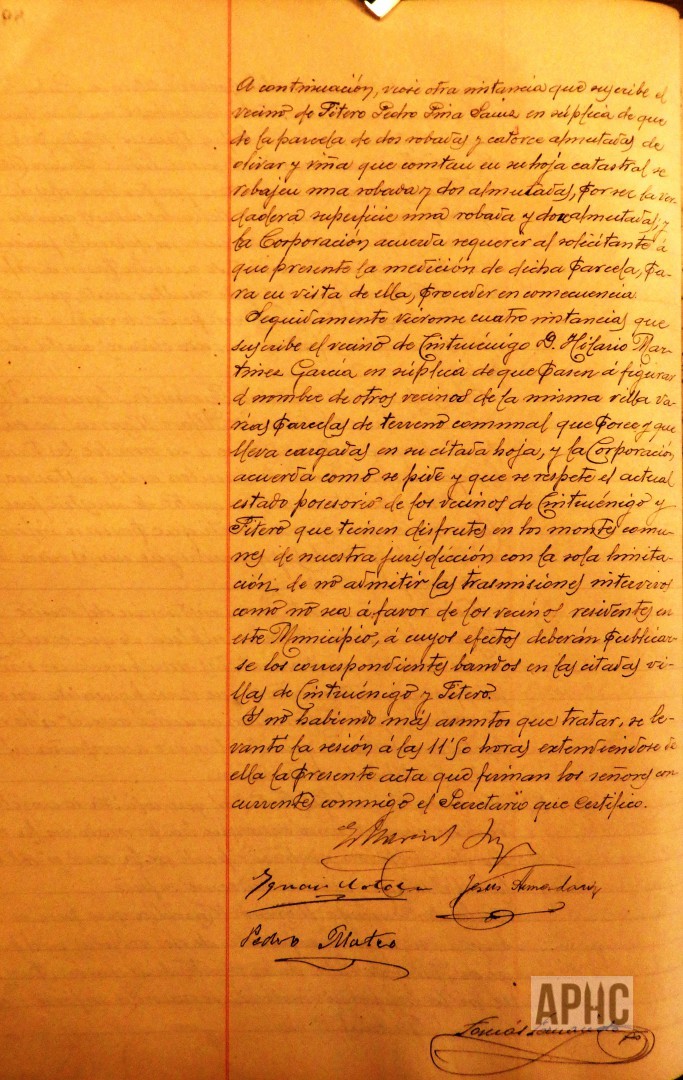 A continuación, viose otra instancia que suscribe el
vecino de Fitero Pedro Pina Sainz en súplica de que
de la parcela de dos robadas y catorce almutadas de
olivar y viña que constan en su hoja catastral se
rebajen una robada y dos almutadas, por ser la ver-
dadera superficie una robada y doce almutadas; y
la Corporación acuerda requerer al solicitante á
que presente la medición de dicha parcela, pa-
ra en vista de ella, proceder en consecuencia.
Seguidamente vieronse cuatro instancias que
suscribe el vecino de Cintruénigo D. Hilario Mar-
tinez García en súplica de que pasen á figurar
á nombre de otros vecinos de la misma villa va-
rias parcelas de terreno comunal que posee y que
lleva cargadas en su citada hoja, y la Corporación
acuerda como se pide y que se respete el actual
estado posesorio de los vecinos de Cintruénigo y
Fitero que tienen disfrutes en los montes comu-
nes de nuestra jurisdicción con la sola limita-
ción de no admitir las trasmisiones intervivos
como no sea á favor de los vecinos residentes en
este Municipio, á cuyos efectos deberán publicar-
se los correspondientes bandos en las citadas vi-
llas de Cintruénigo y Fitero.
Y no habiendo más asuntos que tratar, se le-
vantó la sesión á las 11'50 horas extendiendose de
ella la presente acta que firman los señores con
currentes conmigo el Secretario que certifico.
Jesús Armendariz
Pedro Mateo
APHC
Tomás